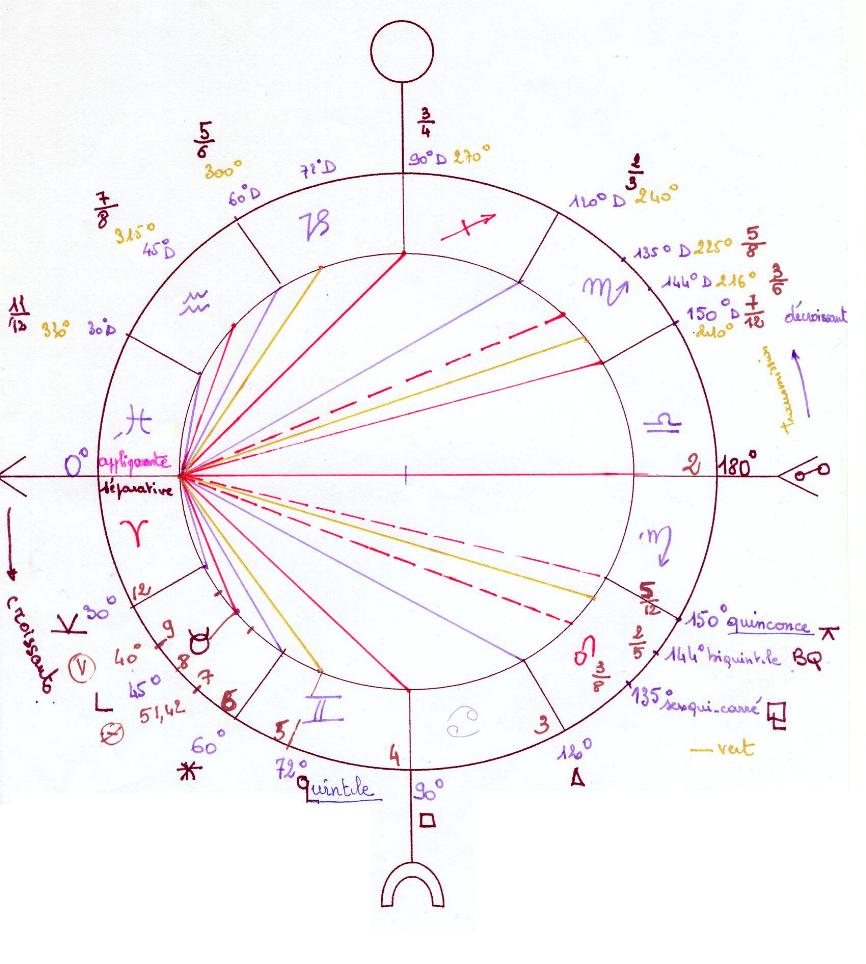 3/4
5/6
300°
72°D
90°D 270°
2/3
60°D
120°D 240°
7/8
315°
45°D
135°D 225° 5/8
144°D 216° 3/5
11/12 330° 30°D
150°D 7/12 décroissant
210°
transmission
0° appliquante
2 180°
séparative
croissante
12
30°
5/12
150° quinconce
9
40°
V
8
2/5
144° biquintile BQ
7
45°
3/8
51,42
6
135° sesqui-carré
60°
5
4
3
120°
vert
72°
quintile
90°